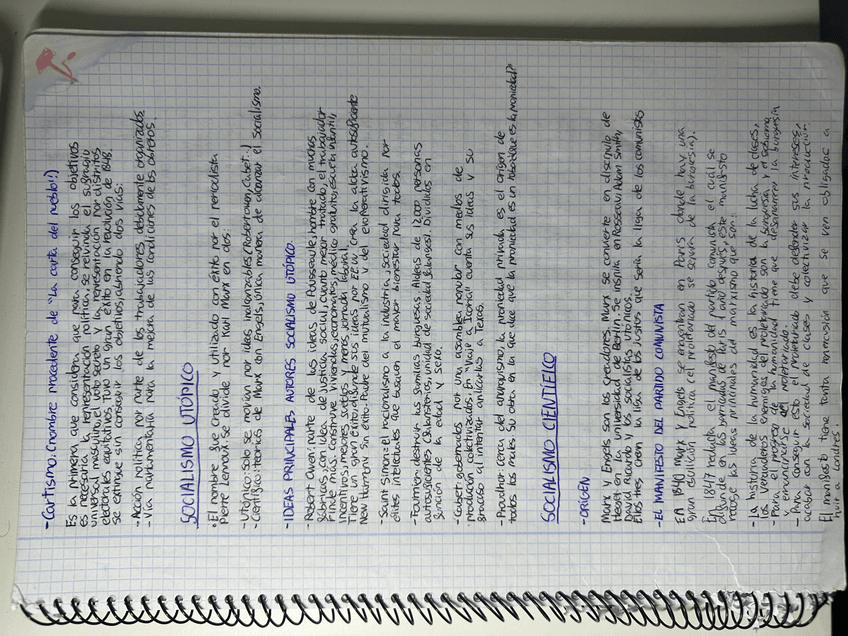 - Cartismo. (nombre procedente de "La carta del pueblo")
Es la primera que considera que para conseguir los objetivos
es necesaria la representación política, se reivindica el sufragio
universal masculino, el voto secreto y la representación por distritos
electorales equitativos. Tuvo un gran éxito en la revolución de 1848,
se extingue sin conseguir los objetivos, abriendo dos vías:
- Acción política por parte de los trabajadores debidamente organizados
- Vía parlamentaria para la mejora de las condiciones de los obreros.
SOCIALISMO UTÓPICO
El nombre fue creado y utilizado con éxito por el periodista
Pierre Lennoux. Se divide por Karl Marx en dos:
- Utópico: solo se movían por ideas inalcanzables (Robert Owen, Cabet...)
- Científico: teorías de Marx en Engels, única manera de alcanzar el socialismo.
- IDEAS PRINCIPALES AUTORES SOCIALISMO UTÓPICO
- Robert Owen: parte de las ideas de Rousseau, hombre con muchas
fábricas, con idea de justicia social, cuanto mejor tratado, el trabajador
rinde más. Construye viviendas, economatos, médico gratuito, escuela infantil,
incentivos, mejores sueldos y menos jornada laboral.
Tiene un gran éxito, difunde sus ideas por EEUU, crea la aldea autosuficiente
New Harmony sin éxito. Padre del mutualismo y del cooperativismo.
- Saint Simon: El racionalismo a la industria, sociedad dirigida por
élites intelectuales que buscan el mayor bienestar para todos.
- Fourier: destruir las familias burguesas. Aldeas de 12.000 personas
autosuficientes (falansterios, unidad de sociedad falange). Divididos en
función de la edad y sexo.
- Cabet: gobernados por una asamblea popular con medios de
producción colectivizados. En "Viaje a Icaria" cuenta sus ideas y su
fracaso al intentar aplicarlas a Texas.
- Proudhon: cerca del anarquismo, la propiedad privada es el origen de
todos los males. Su obra en la que dice que la propiedad es un robo: ¿Que es la propiedad?"
SOCIALISMO CIENTÍFICO
- ORIGEN
Marx y Engels son los creadores. Marx se convierte en discípulo de
Hegel en la Universidad de Berlín. Se inspira en Rosseau, Adam Smith,
David Ricardo y los socialistas utópicos.
Ellos tres crean la liga de los Justos que sería la liga de los comunistas
- EL MANIFESTO DEL PARTIDO COMUNISTA
En 1840 Marx y Engels se encuentran en París donde hay una
gran ebullición política (el proletariado se separa de la burguesía).
En 1847 redacta el manifiesto del partido comunista el cuál se
difunde en las barricadas de París 1 año después, este manifiesto
recoge las ideas principales del marxismo que son:
- La historia de la humanidad es la historia de la lucha de clases,
los verdaderos enemigos del proletariado son la burguesía y el sistema
- Para el progreso de la humanidad tiene que desaparecer la burguesía
- Para conseguir esto el proletariado debe defender sus intereses,
acabar con la sociedad de clases y colectivizar la producción
El manifiesto tiene tanta repercusión que se ven obligados a
huir a Londres.